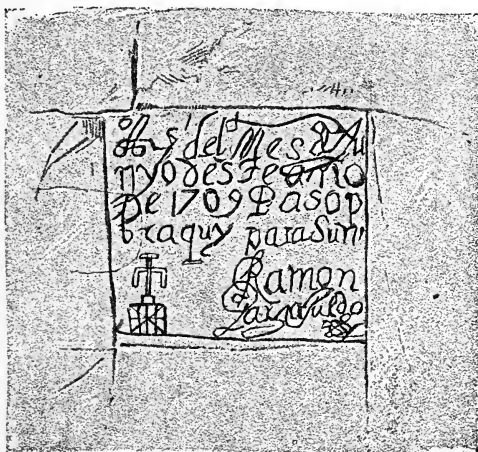 del Mes d Ju
nyo deste año
De 1709 Pasop
braquy paraSuñi
Ramon
Garsia Jurado